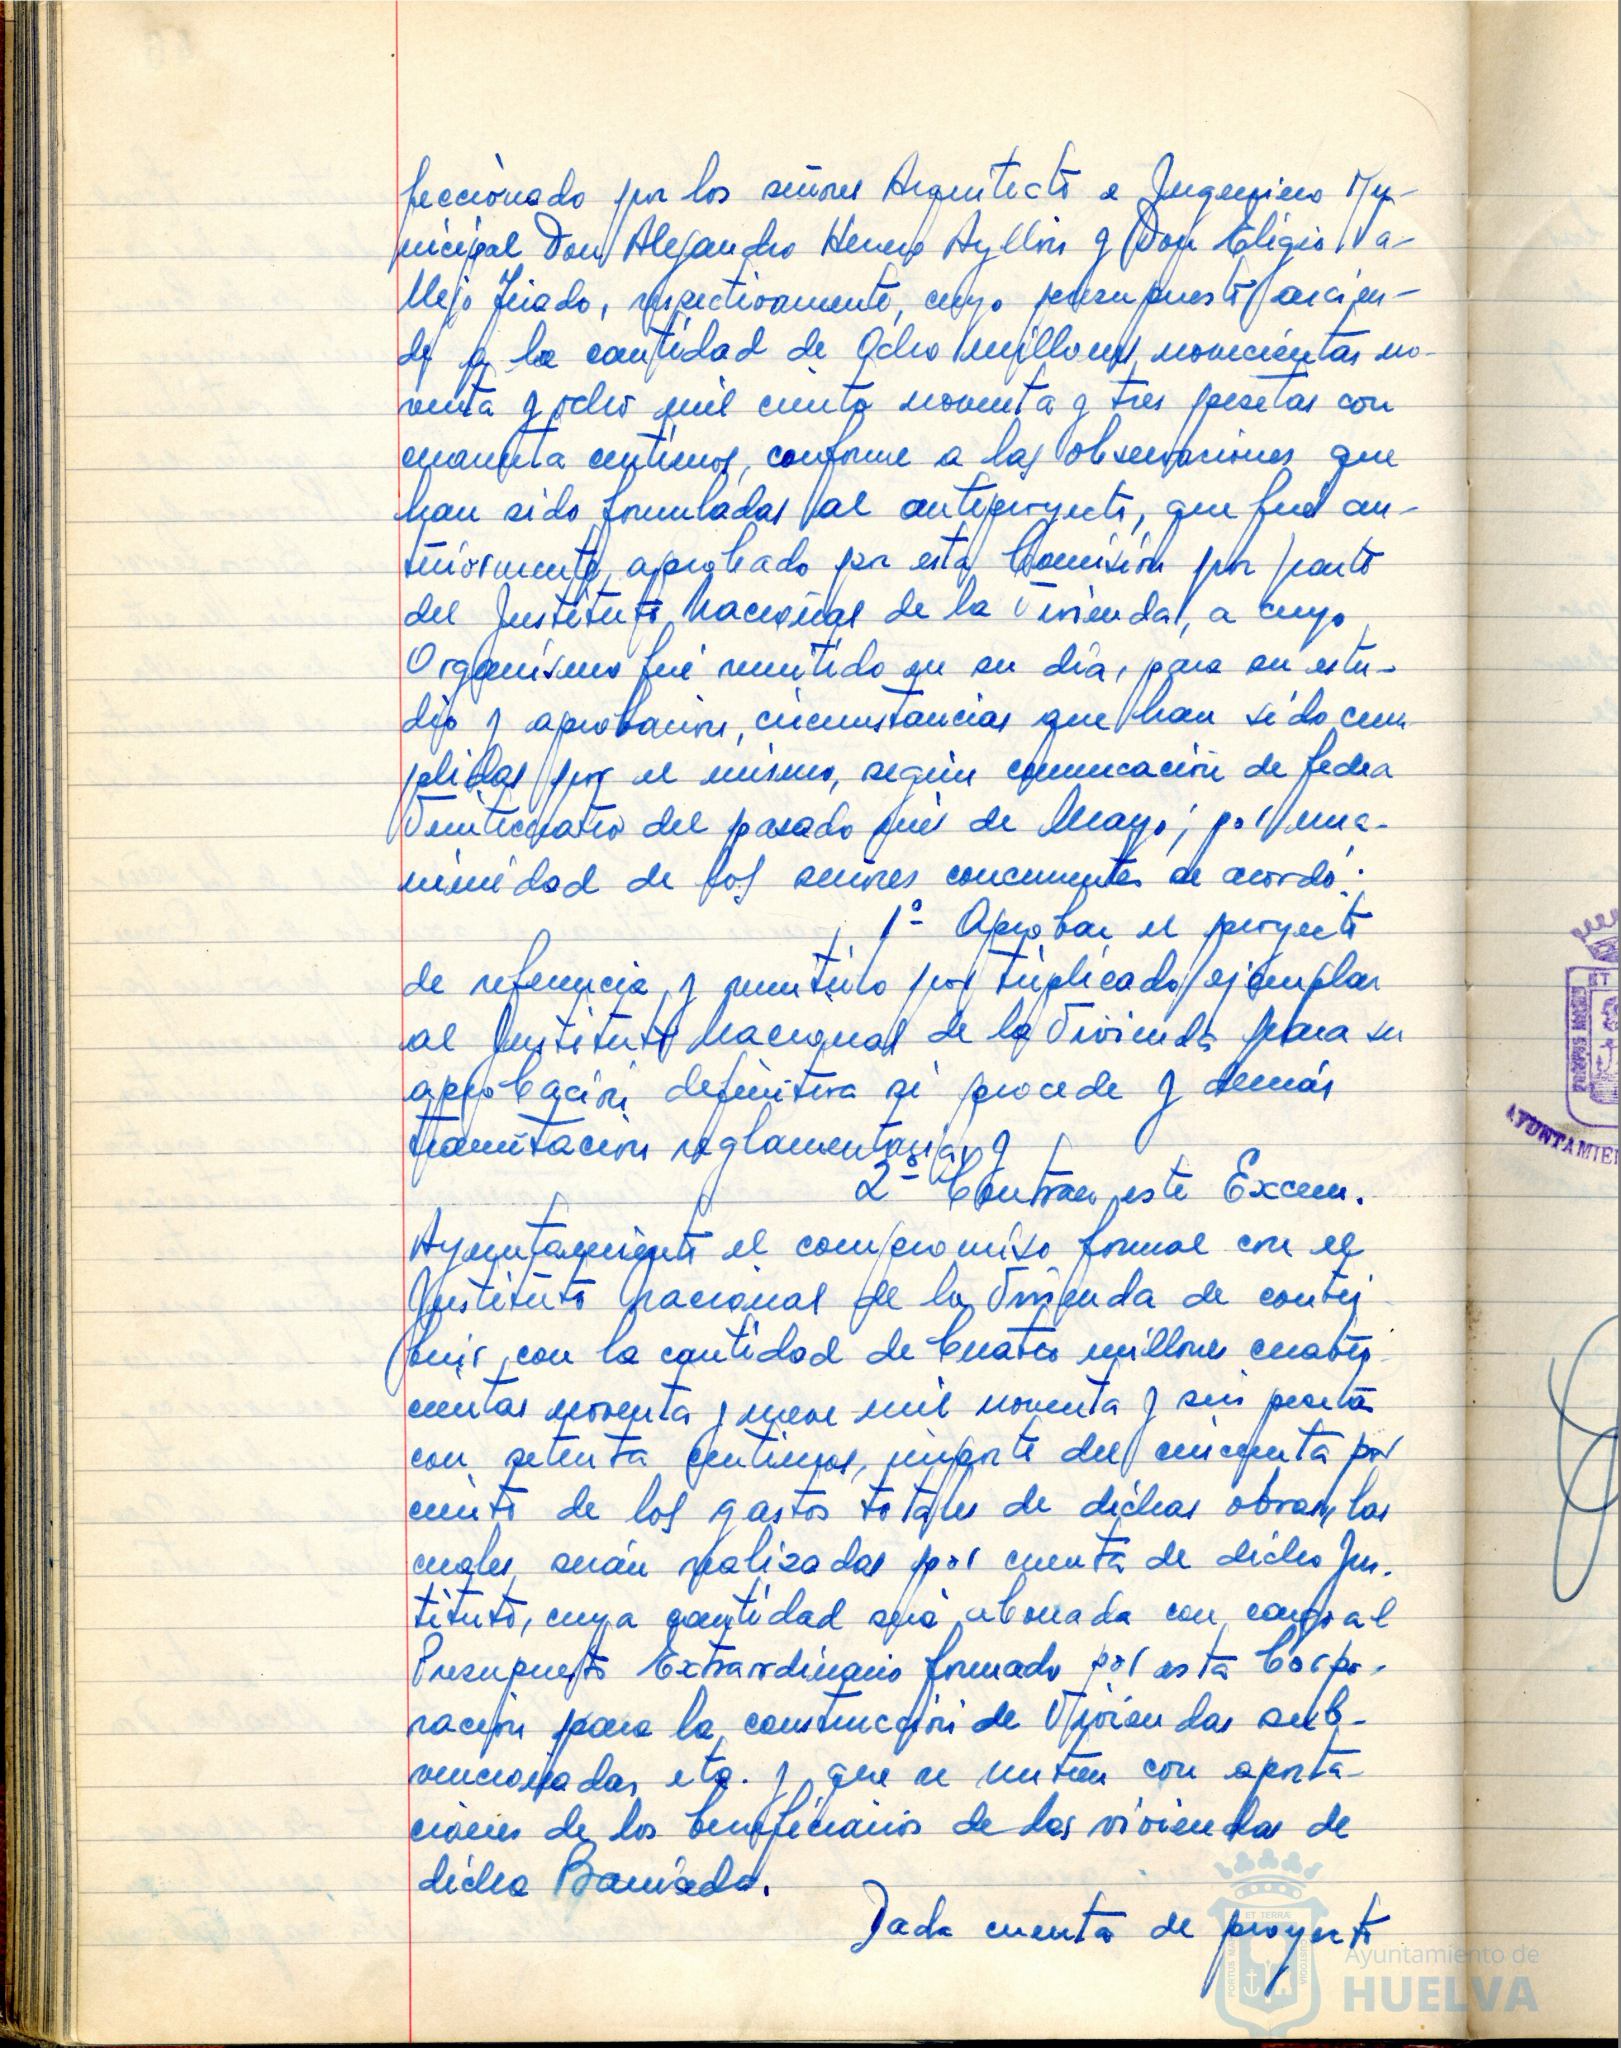 feccionado por los señores Arquitecto e Ingeniero Mu-
nicipal Don Alejandro Herrero Ayllón y Don Eligio Va-
llejo Tirado, respectivamente, cuyo presupuesto ascien-
de a la cantidad de Ocho millones novecientas no-
venta y ocho mil ciento noventa y tres pesetas con
cuarenta centimos, conforme a las observaciones que
han sido formuladas al anteproyecto, que fué an-
teriormente aprobado por esta Comisión por parte
del Instituto Nacional de la Vivienda, a cuyo
Organismo fué remitido en su día, para su estu-
dio y aprobación, circunstancias que han sido cum
plidas por el mismo, según comunicación de fecha
Veinticuatro del pasado mes de Mayo; por una-
nimidad de los señores concurrentes se acordó:
1º Aprobar el proyecto
de referencia y remitirlo por triplicado ejemplar
al Instituto Nacional de la Vivienda para su
aprobación definitiva si procede y demás
tramitación reglamentaria, y
2º Contraer este Excmo.
Ayuntamiento el compromiso formal con el
Instituto Nacional de la Vivienda de contri
buir con la cantidad de Cuatro millones cuatro
cientas noventa y nueve mil noventa y seis pesetas
con setenta centimos, importe del cincuenta por
ciento de los gastos totales de dichas obras, las
cuales serán realizadas por cuenta de dicho Ins-
tituto, cuya cantidad será abonada con cargo al
Presupuesto Extraordinario formado por esta Corpo-
ración para la construcción de Viviendas sub-
vencionadas etc. y que se nutren con aporta-
ciones de los beneficiarios de las viviendas de
dicha Barriada.
Dada cuenta de proyecto
AYUNTAMIE
Ayuntamiento de
HUELVA